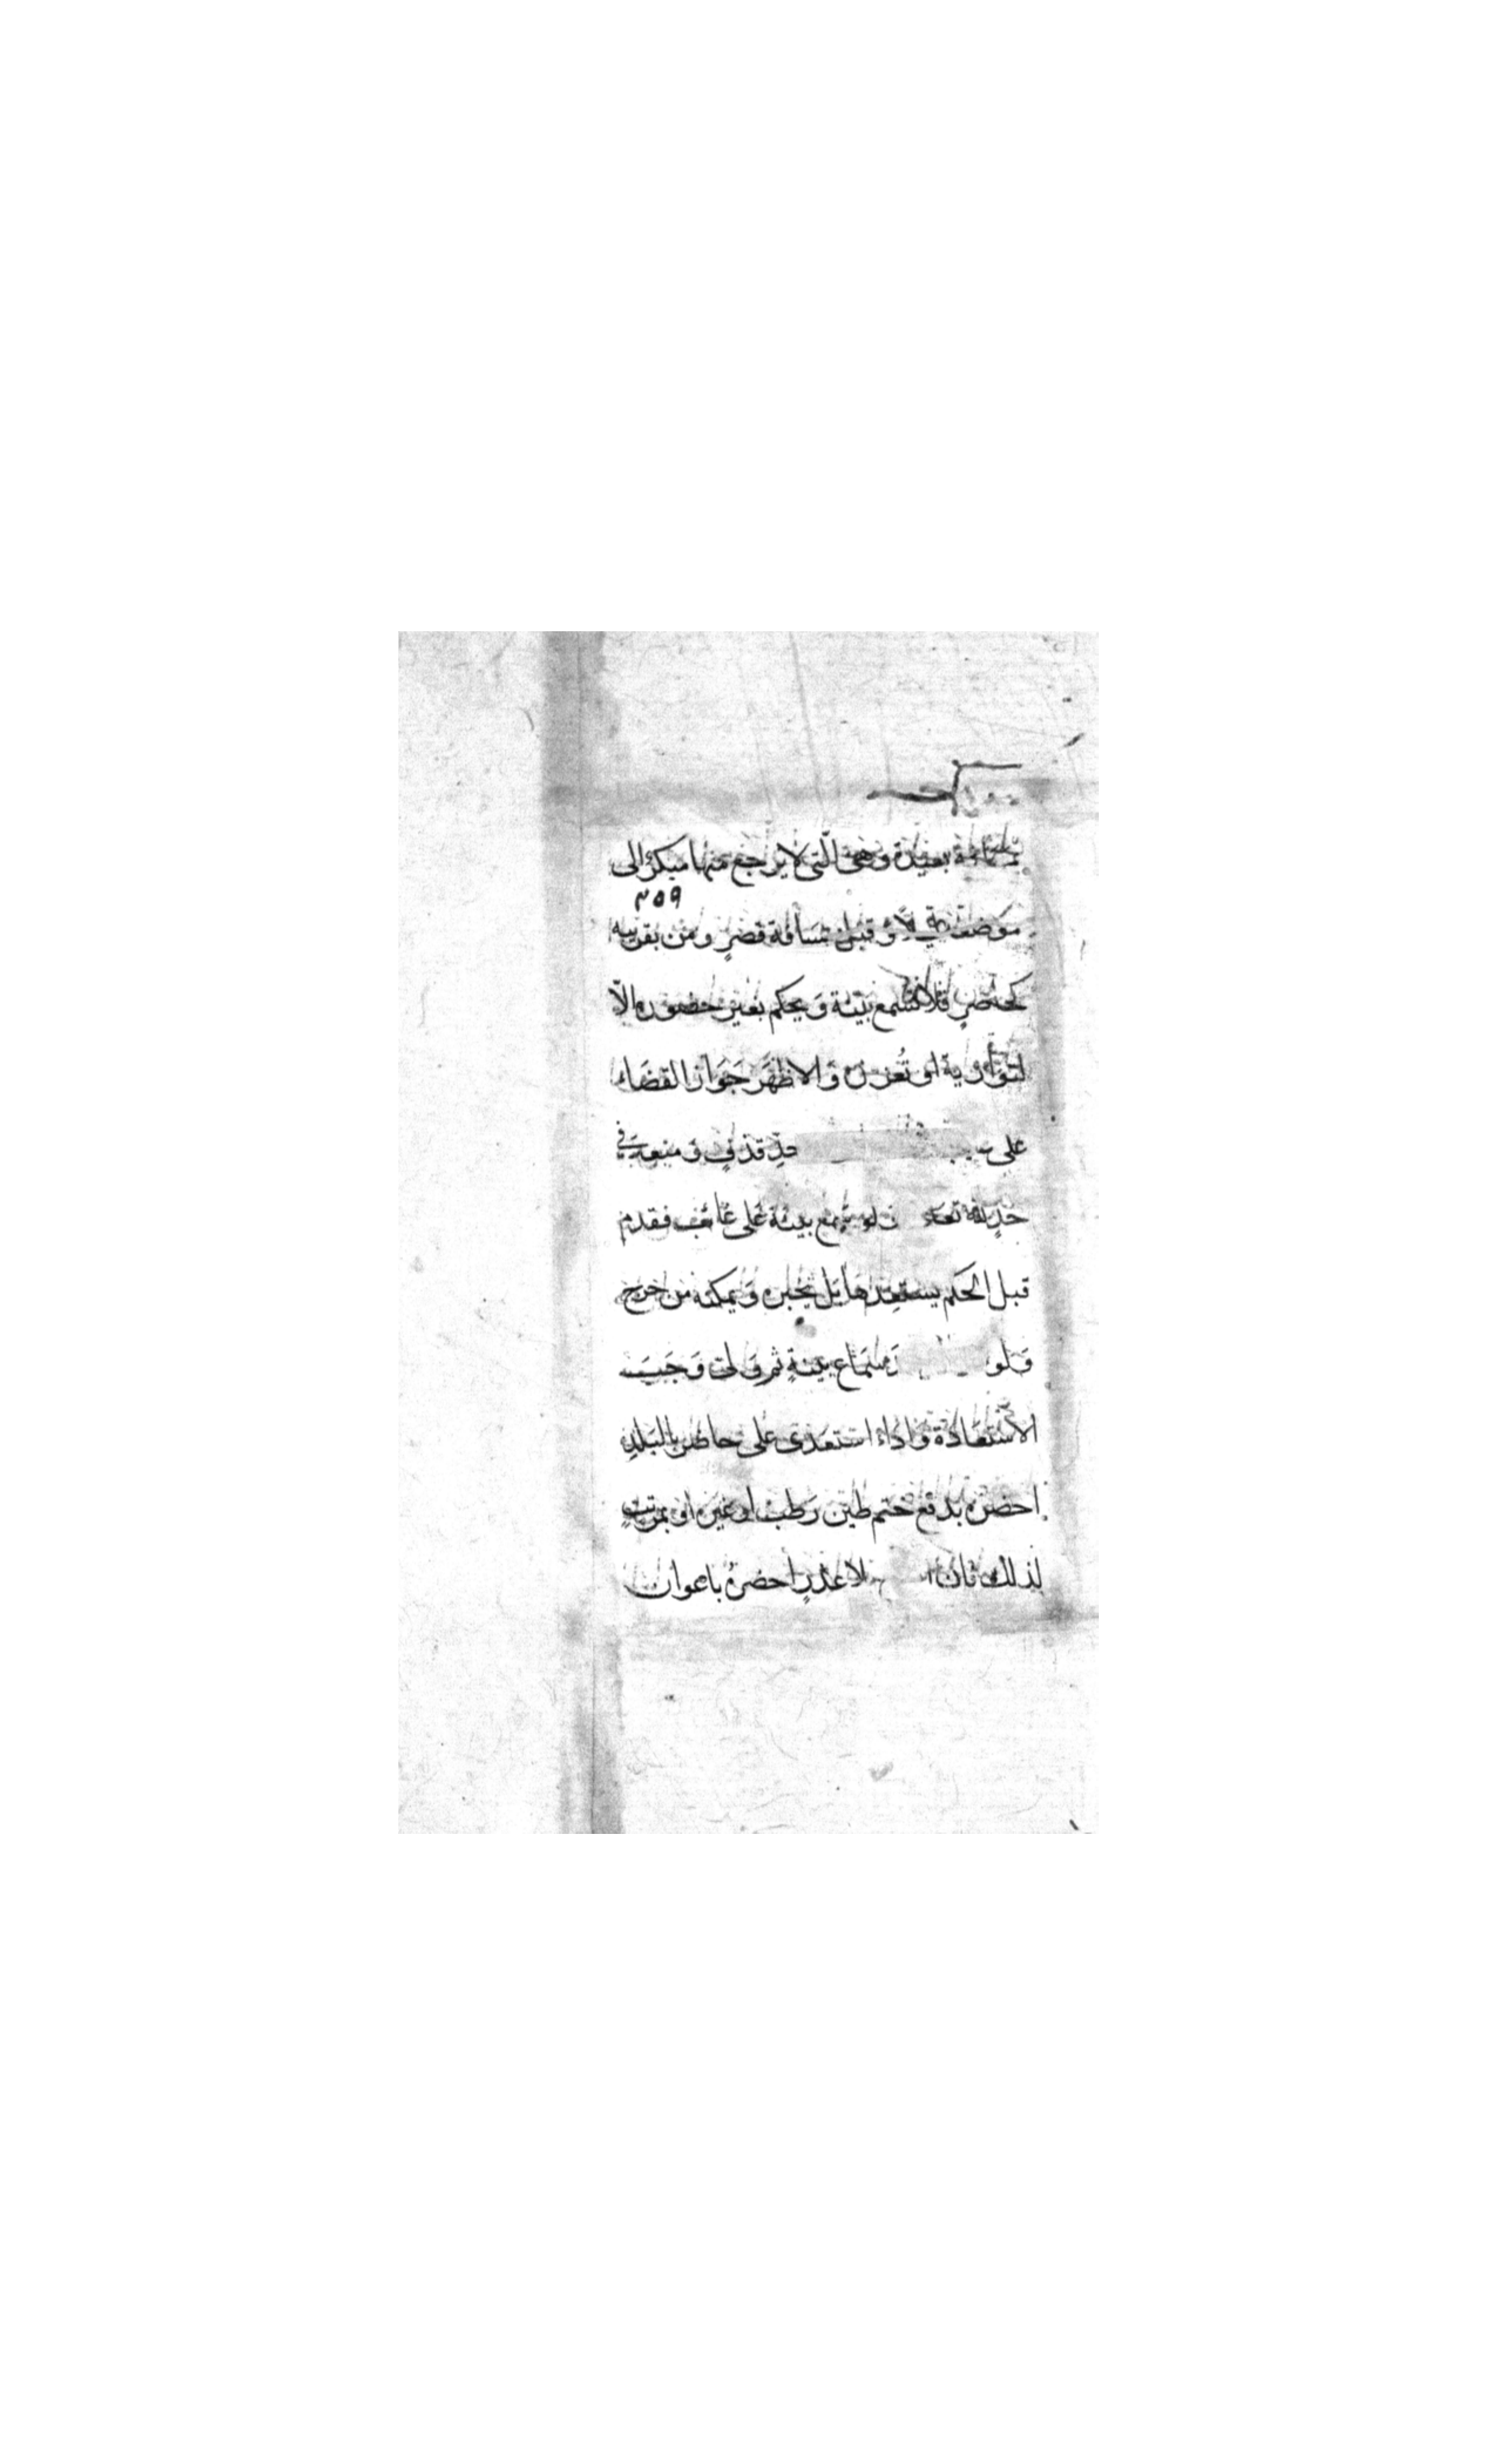 بعيدة وهى التى لا يرجع منها مبكر الى
٣٥٩
موضعه ليلا وقيل مسافة قصرٍ ومن بقربه
كحاضرٍ فلا تسمع بينة وَيحكم بغير حضوره الّا
لتواريه او تُعززه وَالاظهَر جَوَاز القضَاء
على حدِّ قذفٍ وَمنعه فى
حدٍ لله تعا ولو سمع بينة عَلى غائب فقدم
قبل الحَكم يستعِدها بَل يخبره وَيمكنه من جرح
وَلو سَماع بينةٍ ثم وَلى وَجَبَت
الاستعَادة وَاذا استعدَى على حاضر بالبَلدِ
احضره بدفع ختم طين رَطب او غيره او بمرتبٍ
لذلك فان لا عذرٍ احضرهُ باعوان